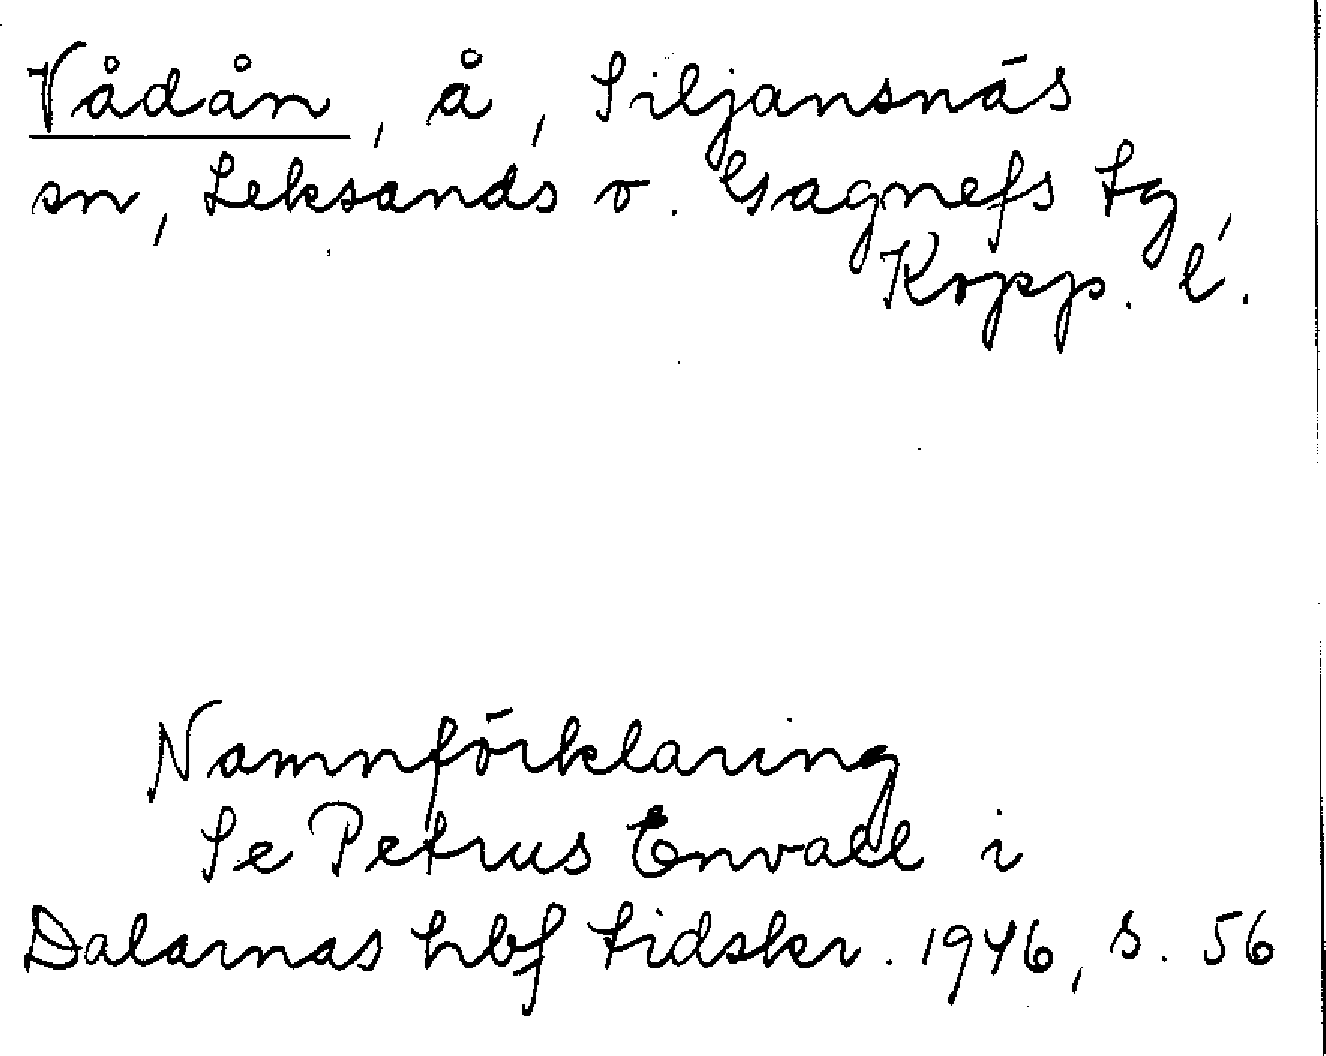 Vådån, å, Siljansnäs
sn, Leksands o. Gagnefs tg,
Kopp. l.
Namnförklaring
Se Petrus Envall i
Dalarnas hbf tidskr. 1946, s. 56